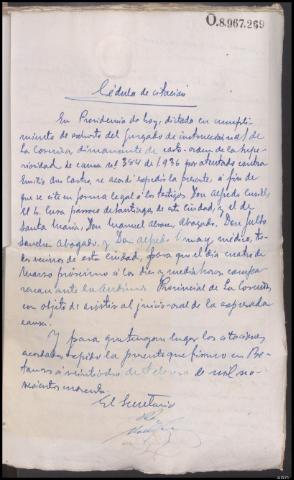 O.8.967.269
Cédula de citacion
En Providencia de hoy, dictada en cumpli-
miento de exhorto del juzgado de instruccion nº 1 de
La Coruña dimanante de carta-orden de la Supe-
rioridad de causa nº 384 de 1936 por atentado contra
Emilio dos Castro, se acordó expedir la presente, a fin de
que se cite en forma legal a los testigos Don Alfredo
el Cura párroco de Santiago de esta ciudad, y el de
Santa María, Don Manuel abogado, Don Julio
Sanchez Abogado, y Don Alfredo médico, to-
dos vecinos de esta ciudad, para que el dia cuatro de
Marzo próximo a las diez y media horas compa-
rezcan ante la Audiencia Provincial de La Coruña,
con objeto de asistir al juicio oral de la expresada
causa.
Y para que tengan lugar las citaciones
acordadas expido la presente que firmo en Be-
tanzos a veintiocho de Febrero de mil no-
vecientos cuarenta.
El Secretario